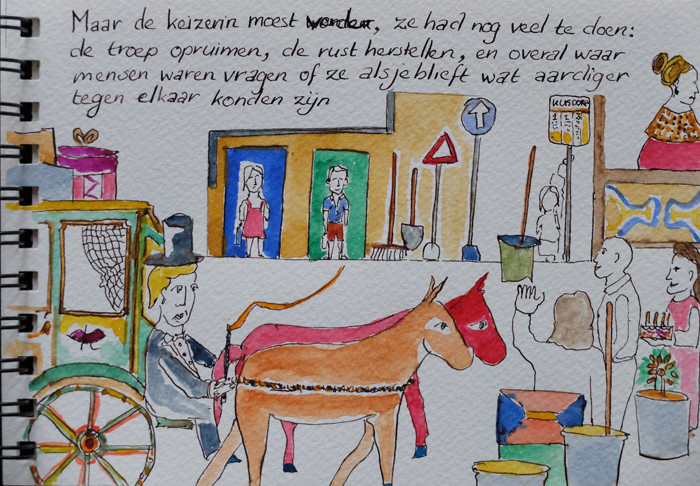 Maar de keizerin moest , ze had nog veel te doen:
de troep opruimen, de rust herstellen, en overal waar
mensen waren vragen of ze alsjeblieft wat aardiger
tegen elkaar konden zijn